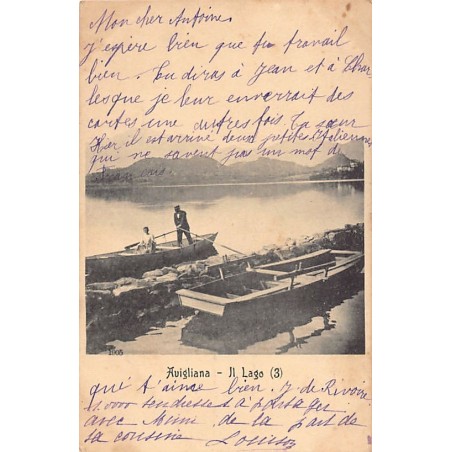 Mon cher Antoine,
j'espère bien que tu travail
bien. Tu diras à Jean et à Char
lesque je leur enverrait des
cartes une autres fois. Ta sœur
Hier il est arrivé deux petites Italiennes
qui ne savent pas un mot de
français
1005
Avigliana - Il Lago (3)
qui t'aime bien. J. de Rivoire
1.000 tendresses à partager
avec Mimi de la part de
sa cousine Louison